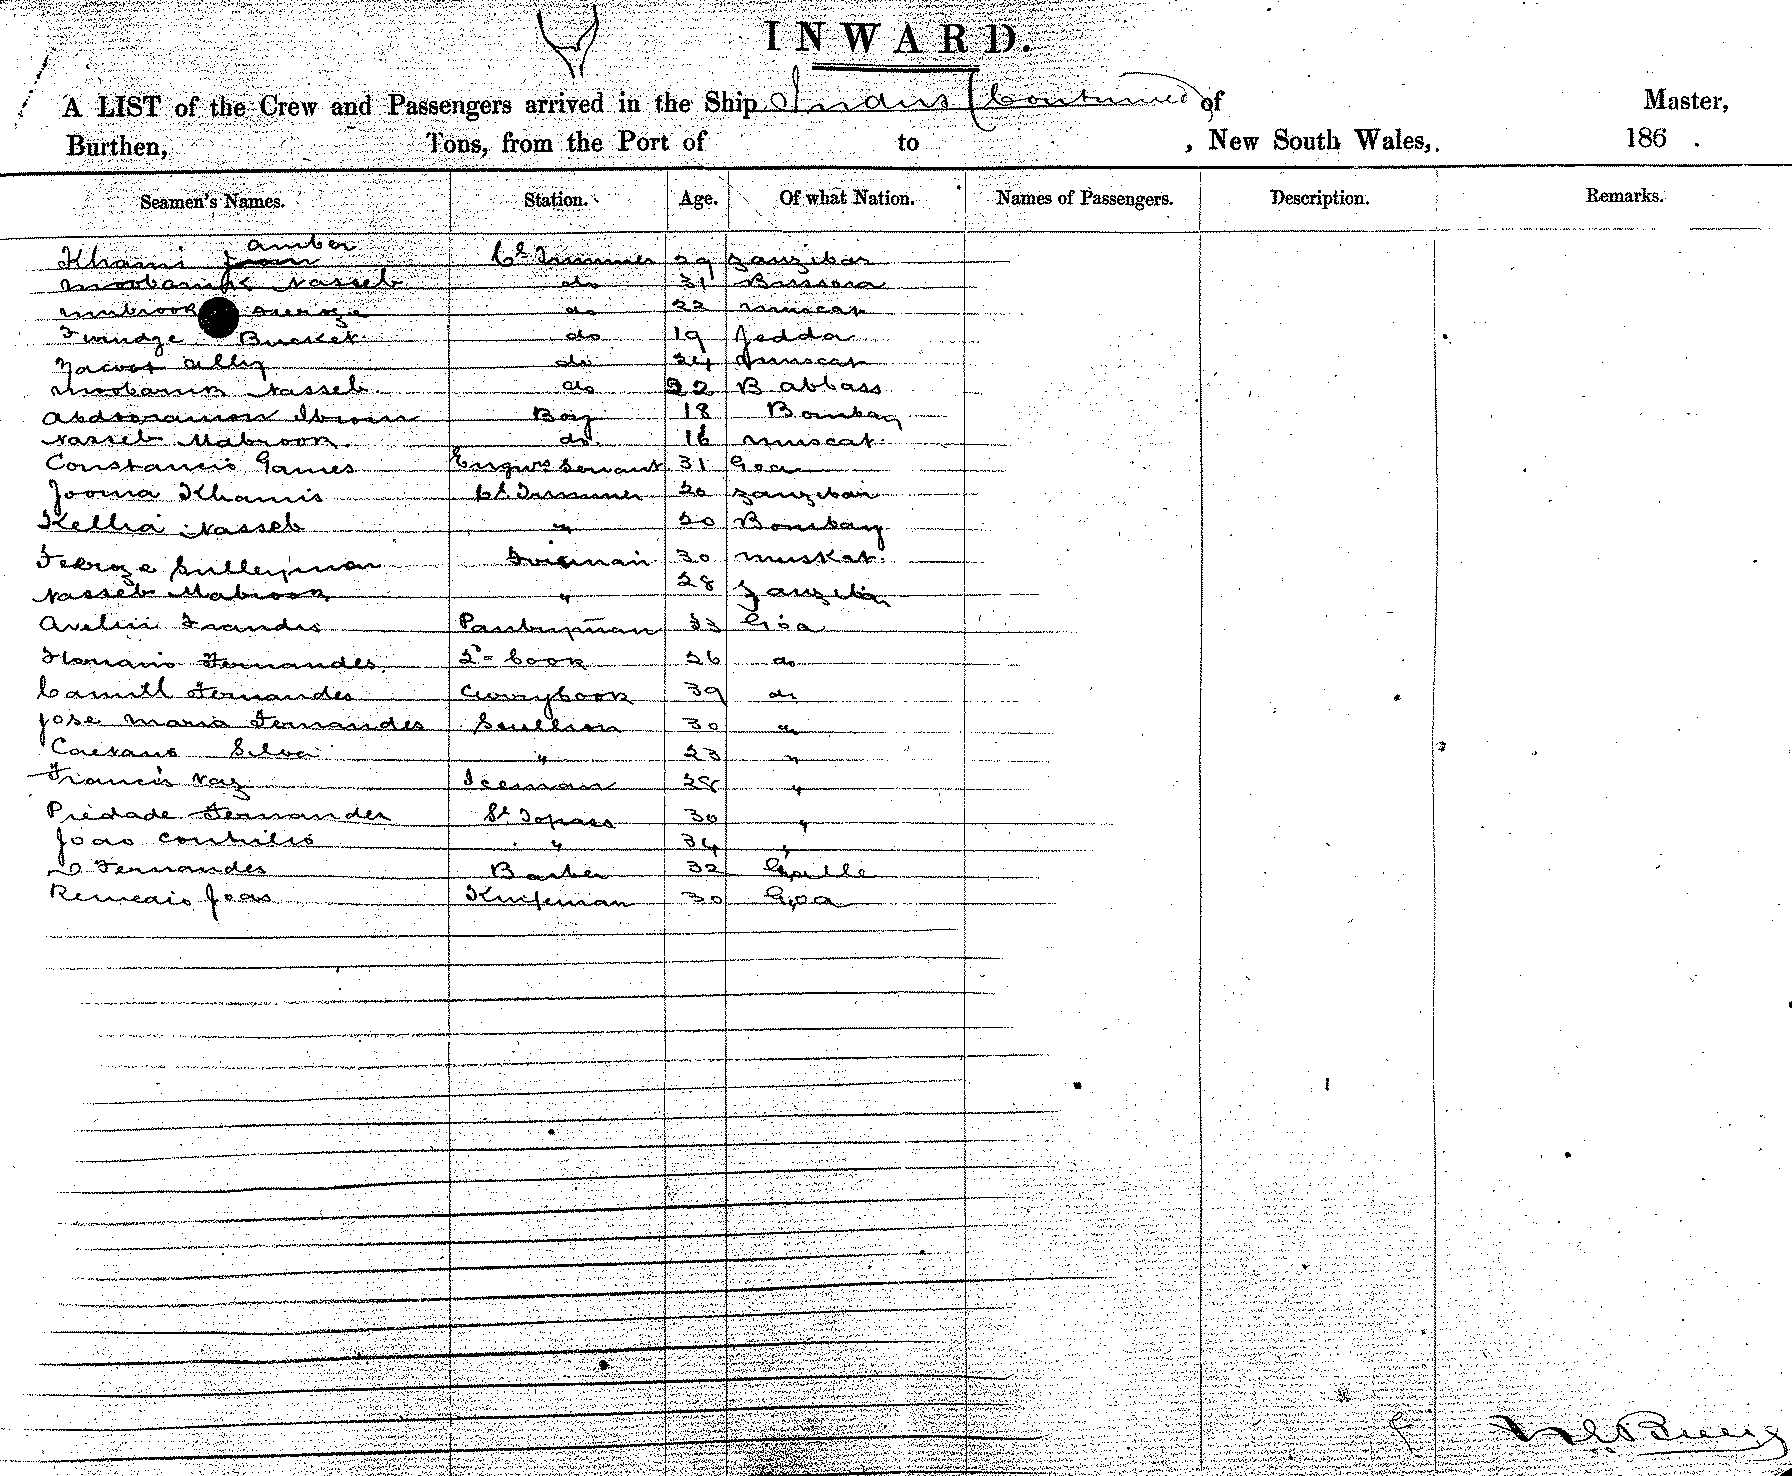 INWARD.
A LIST of the Crew and Passengers arrived in the Ship Indus (Continued) of Master,
Burthen, Tons, from the Port of to , New South Wales, 186 .
Seamen's Names. Station. Age. Of what Nation. Names of Passengers. Description. Remarks.
amber
Khamis Cl Trimmer 29 Zanzibar
Moobaruk Nasseb do 31 Bussora
Mubrook do 22 Muscat
Ferudge Bucket do 19 Jedda
Yacoot Ally do 24 Muscat
Moobaruk Nasseb do 22 B Abbass
Abdooramon Ibrom Boy 18 Bombay
Nasseb Mabrook do 16 Muscat
Constancio Gomes Engrs Servant 31 Goa
Jooma Khamis Cl Trimmer 20 Zanzibar
Kellia Nasseb " 20 Bombay
Feroze Sulleyman Fireman 30 Muskat
Nasseb Mabrook " 28 Zanzibar
Avelin Frandis Pantryman 33 Goa
Floriano Fernandes 2nd Cook 26 do
Camill Fernandes Currycook 39 do
Jose Maria Fernandes Scullion 30 do
Caetano Silva " 23 "
Francis Vaz Iceman 28 "
Piedade Fernandes St Topass 30 "
Joao " 34 "
D Fernandes Barber 32 Galle
Remedio Joao Knifeman 30 Goa